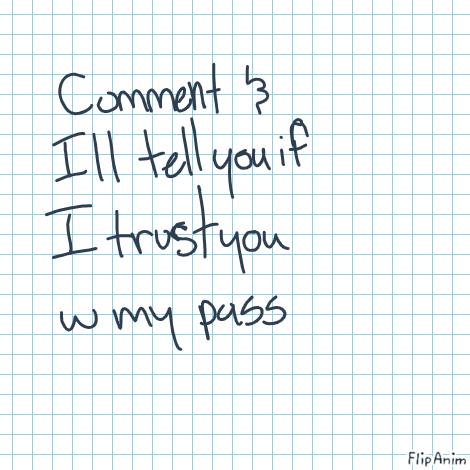 Comment &
Ill tell you if
I trust you
w my pass
FlipAnim